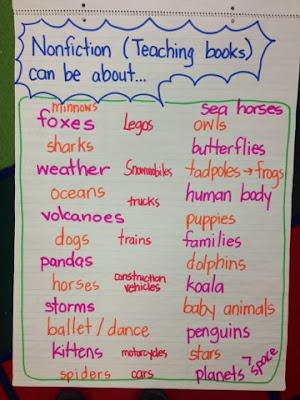 Nonfiction (Teaching books)
can be about...
minnows
foxes
sharks
weather
oceans
volcanoes
dogs
pandas
horses
storms
ballet / dance
kittens
spiders
Legos
Snowmobiles
trucks
trains
construction
vehicles
motorcycles
cars
sea horses
owls
butterflies
tadpoles → frogs
human body
puppies
families
dolphins
koala
baby animals
penguins
stars
planets → space